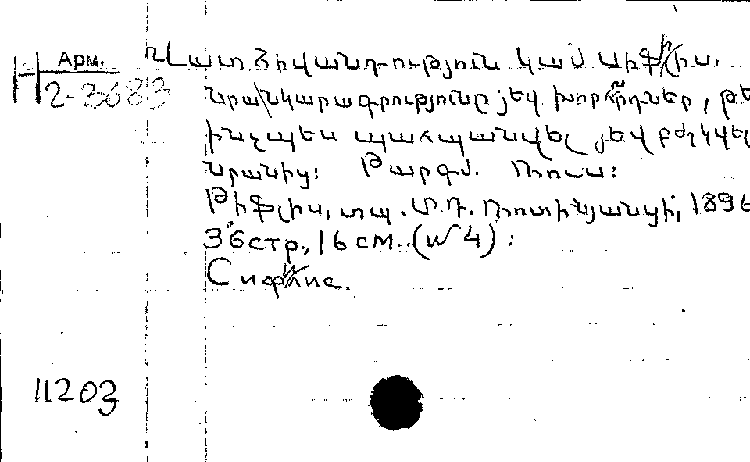 Арм.
Н 2-3683
Վատ հիվանդություն կամ սիֆիլիս.
նրա նկարագրությունը յեվ խորհրդներ, թե
ինչպես պահպանվել յեվ բժշկվել
նրանից: Թարգմ. Ռուս:
Թիֆլիս, տպ. Մ.Դ. Ռոտինյանցի, 1896
36 стр., 16 см.. (№ 4) :
Сифилис.
11203